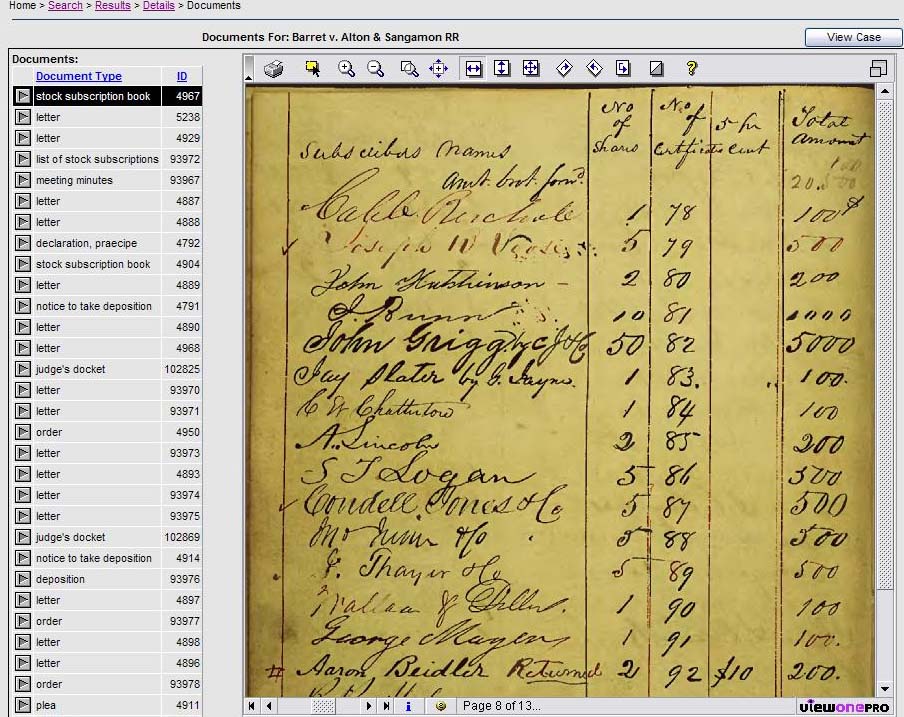 Home > Search > Results > Details > Documents
Documents For: Barret v. Alton & Sangamon RR
View Case
Documents:
Document Type ID
stock subscription book 4967
letter 5238
letter 4929
list of stock subscriptions 93972
meeting minutes 93967
letter 4887
letter 4888
declaration, praecipe 4792
stock subscription book 4904
letter 4889
notice to take deposition 4791
letter 4890
letter 4968
judge's docket 102825
letter 93970
letter 93971
order 4950
letter 93973
letter 4893
letter 93974
letter 93975
judge's docket 102869
notice to take deposition 4914
deposition 93976
letter 4897
order 93977
letter 4898
letter 4896
order 93978
plea 4911
Subscibers Names No of Shares No. of Certficate 5 pr Cent Total amount
Amt. brt. forwd.
1 78 100
Joseph 5 79 500
John Hutchinson - 2 80 200
J. Bunn 10 81 1000
John Grigg by 50 82 5000
Jay Slater by G. Jayne. 1 83. 100.
C W Chatterton 1 84 100
A. Lincoln 2 85 200
S T Logan 5 86 500
Condell Jones & Co 5 87 500
& Co 5 88 500
J. Thayer & Co 5 89 500
Wallace & Diller. 1 90 100
George 1 91 100.
# Aaron Beidler Returned 2 92 $10 200.
Page 8 of 13...
viewonepro